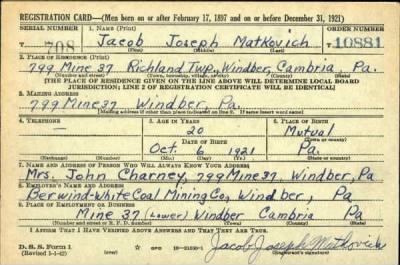 REGISTRATION CARD—(Men born on or after February 17, 1897 and on or before December 31, 1921)
SERIAL NUMBER 1. NAME (Print) ORDER NUMBER
T- 708 Jacob Joseph Matkovich 10881
(First) (Middle) (Last)
2. PLACE OF RESIDENCE (Print)
799 Mine 37 Richland Twp., Windber, Cambria Pa.
(Number and street) (Town, township, village, or city) (County) (State)
[THE PLACE OF RESIDENCE GIVEN ON THE LINE ABOVE WILL DETERMINE LOCAL BOARD
JURISDICTION; LINE 2 OF REGISTRATION CERTIFICATE WILL BE IDENTICAL]
3. MAILING ADDRESS
799 Mine 37 Windber, Pa.
[Mailing address if other than place indicated on line 2. If same insert word same]
4. TELEPHONE 5. AGE IN YEARS 6. PLACE OF BIRTH
— 20 Mutual
DATE OF BIRTH (Town or county)
Oct. 6 1921 Pa.
(Exchange) (Number) (Mo.) (Day) (Yr.) (State or country)
7. NAME AND ADDRESS OF PERSON WHO WILL ALWAYS KNOW YOUR ADDRESS
Mrs. John Charney, 799 Mine 37, Windber, Pa
8. EMPLOYER'S NAME AND ADDRESS
Berwind-White Coal Mining Co, Windber, Pa
9. PLACE OF EMPLOYMENT OR BUSINESS
Mine 37 (Lower) Windber Cambria Pa
(Number and street or R. F. D. number) (Town) (County) (State)
I AFFIRM THAT I HAVE VERIFIED ABOVE ANSWERS AND THAT THEY ARE TRUE.
D. S. S. Form 1
(Revised 1-1-42) GPO Jacob Joseph Matkovich